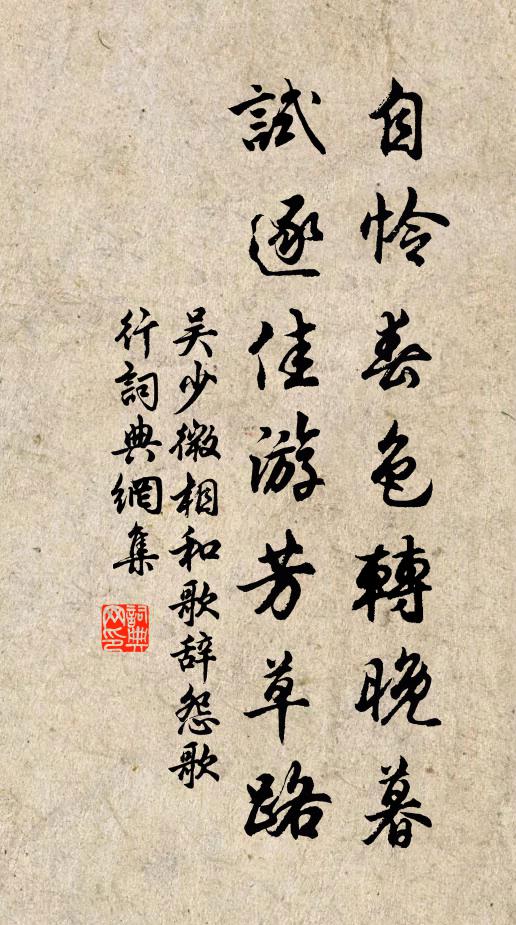 自怜春色轉晚暮
試逐佳游芳草路
吴少微相和歌辞怨歌
行詞典網集
詞典
网印